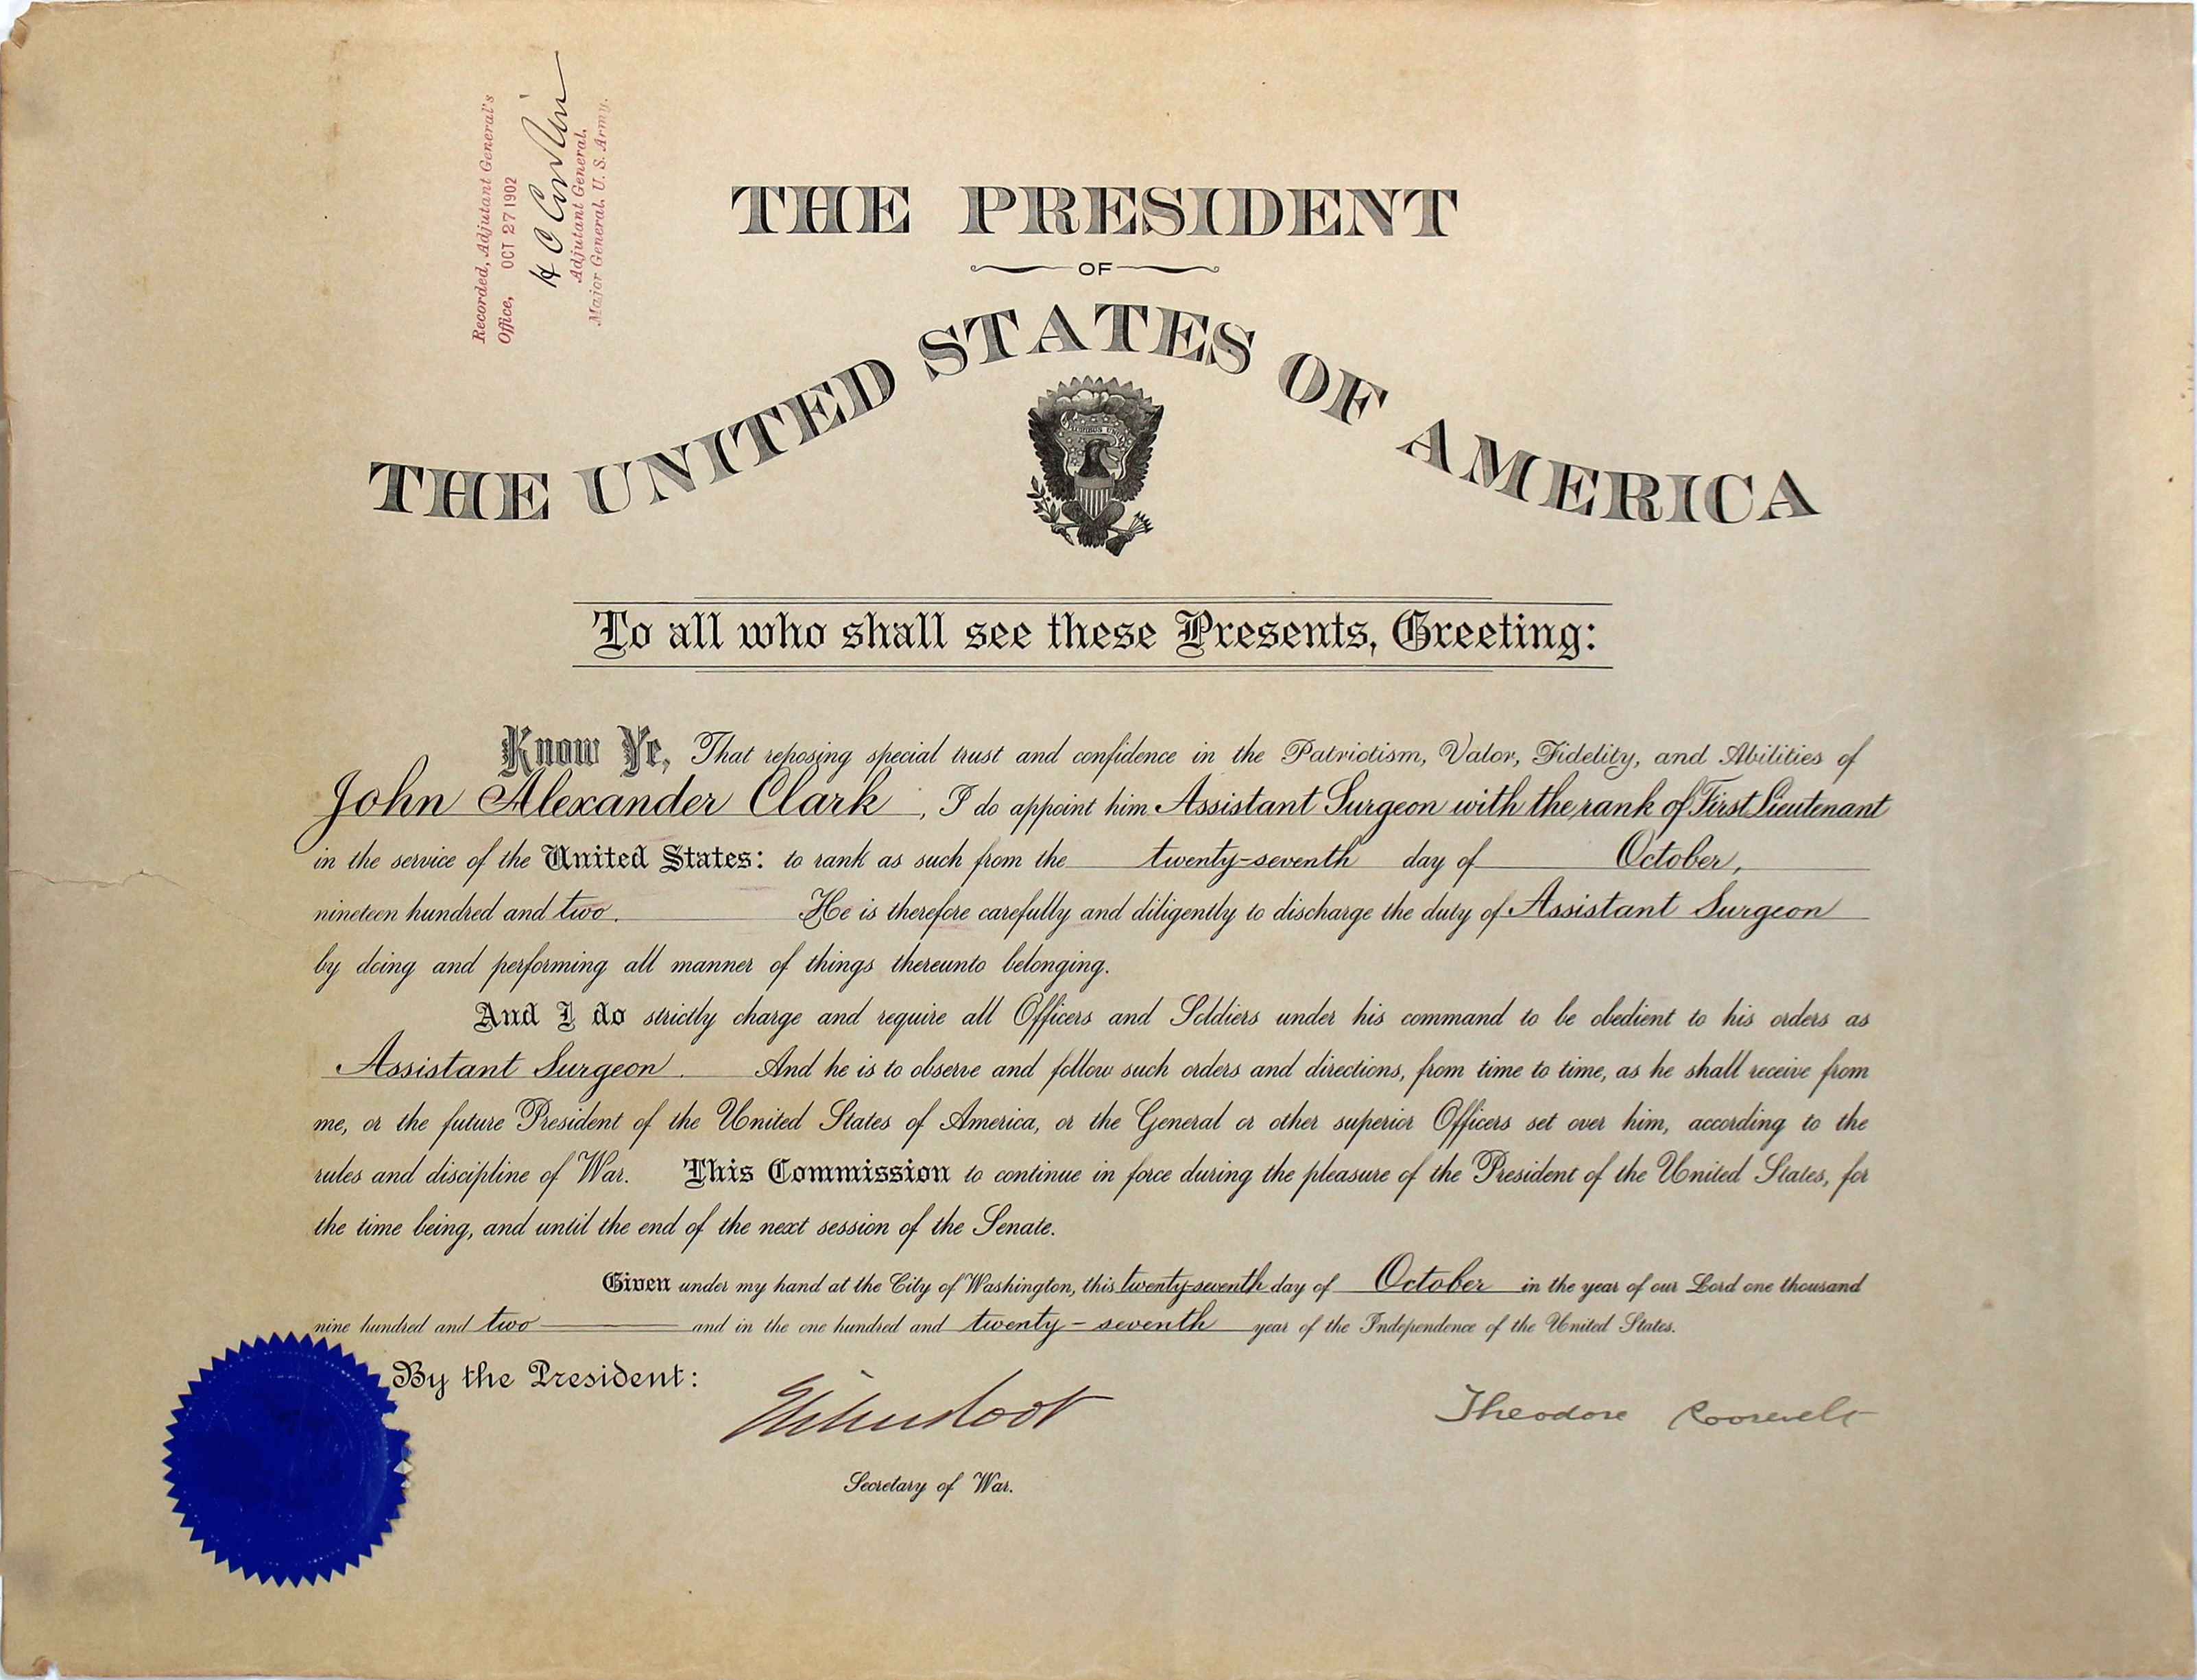 Recorded, Adjutant General's
Office, OCT 27 1902
H C Corbin
Adjutant General,
Major General, U. S. Army.
THE PRESIDENT
OF
THE UNITED STATES OF AMERICA
To all who shall see these Presents, Greeting:
Know Ye, That reposing special trust and confidence in the Patriotism, Valor, Fidelity, and Abilities of
John Alexander Clark, I do appoint him Assistant Surgeon with the rank of First Lieutenant
in the service of the United States: to rank as such from the twenty-seventh day of October,
nineteen hundred and two. He is therefore carefully and diligently to discharge the duty of Assistant Surgeon
by doing and performing all manner of things thereunto belonging.
And I do strictly charge and require all Officers and Soldiers under his command to be obedient to his orders as
Assistant Surgeon. And he is to observe and follow such orders and directions, from time to time, as he shall receive from
me, or the future President of the United States of America, or the General or other superior Officers set over him, according to the
rules and discipline of War. This Commission to continue in force during the pleasure of the President of the United States, for
the time being, and until the end of the next session of the Senate.
Given under my hand at the City of Washington, this twenty-seventh day of October in the year of our Lord one thousand
nine hundred and two and in the one hundred and twenty-seventh year of the Independence of the United States.
By the President:
Elihu Root
Theodore Roosevelt
Secretary of War.